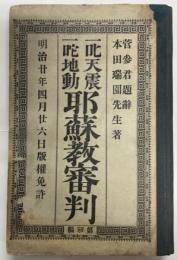 菅参君題辭
本田瑞園先生著
一叱天震
一咤地動
耶蘇教審判
明治廿年四月廿六日版權免許